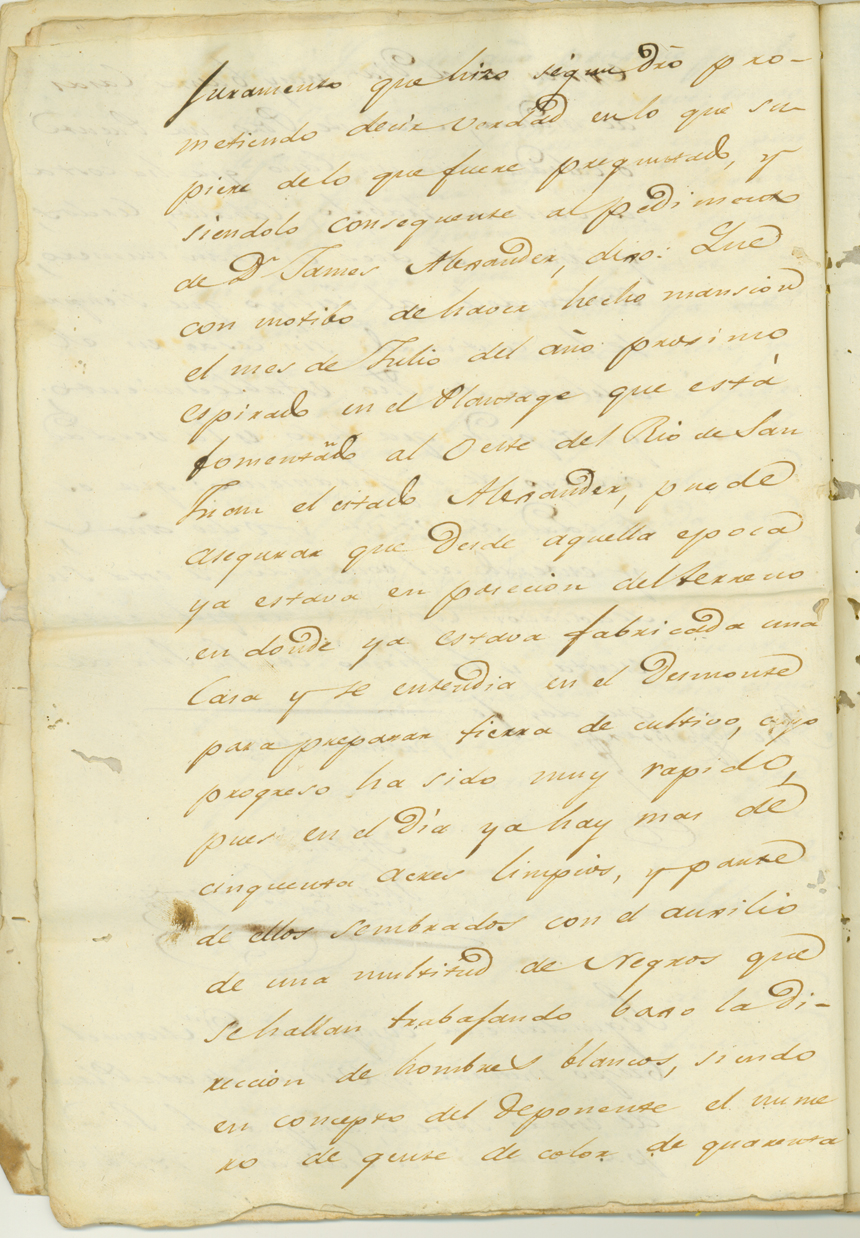 Juramento que hizo segun dro pro-
metiendo decir verdad en lo que su-
piere de lo que fuere preguntado, y
siendolo consequente al pedimento
de Dn James Alexander, dixo: Que
con motibo de haver hecho mansion
el mes de Julio del año proximo
espirado en el Plantage que está
fomentando al Oeste del Rio de San
Juan el citado Alexander, puede
asegurar que desde aquella epoca
ya estava en posecion del terreno
en donde ya estava fabricada una
Casa y se entendia en el Desmonte
para preparar tierra de cultivo, cuyo
progreso ha sido muy rapido,
pues en el Dia ya hay mas de
cinquenta acres limpios, y parte
de ellos sembrados con el auxilio
de una multitud de Negros que
se hallan trabajando baxo la Di-
reccion de hombres blancos, siendo
en concepto del Deponente el nume
ro de gente de color de quarenta